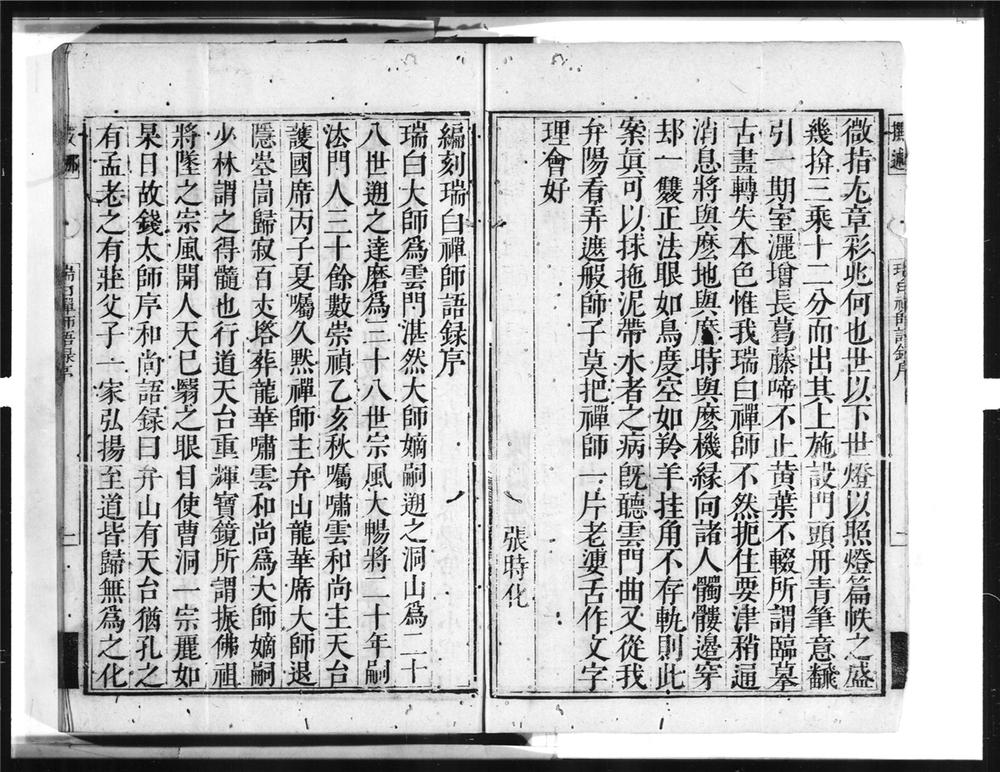 微指尢章彩兆何也世以下世燈以照燈篇帙之盛
幾拚三乘十二分而出其上施設門頭冊青筆意飜
引一期室灑增長葛藤啼不止黄葉不輟所謂臨摹
古畫轉失本色惟我瑞白禪師不然扼住要津稍逼
消息將與麼地與麼時與麼機緣向諸人髑髏邊穿
却一雙正法眼如鳥度空如羚羊挂角不存軌則此
案真可以抹拖泥帶水者之病既聽雲門曲又從我
弁陽看弄遮般師子莫把禪師一片老婆舌作文字
理會好
張時化
編刻瑞白禪師語録序
瑞白大師爲雲門湛然大師嫡嗣遡之洞山爲二十
八世遡之達磨爲三十八世宗風大暢將二十年嗣
法門人三十餘數崇禎乙亥秋囑嘯雲和尚主天台
護國席丙子夏囑久默禪師主弁山龍華席大師退
隱崆峒歸寂百丈塔葬龍華嘯雲和尚爲大師嫡嗣
少林謂之得髓也行道天台重輝寶鏡所謂振佛祖
將墜之宗風開人天巳翳之眼目使曹洞一宗麗如
杲日故錢太師序和尚語録曰弁山有天台猶孔之
有孟老之有莊父子一家弘揚至道皆歸無爲之化
瑞白禪師語録序
一
瑞白禪師語録序
一